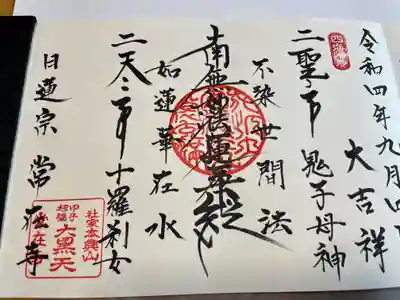 令和四年九月
大吉祥
二聖
鬼子母神
不染世間法
南無妙法蓮華経
如蓮華在水
二天
十羅刹女
日蓮宗
社家本興山
大黒天